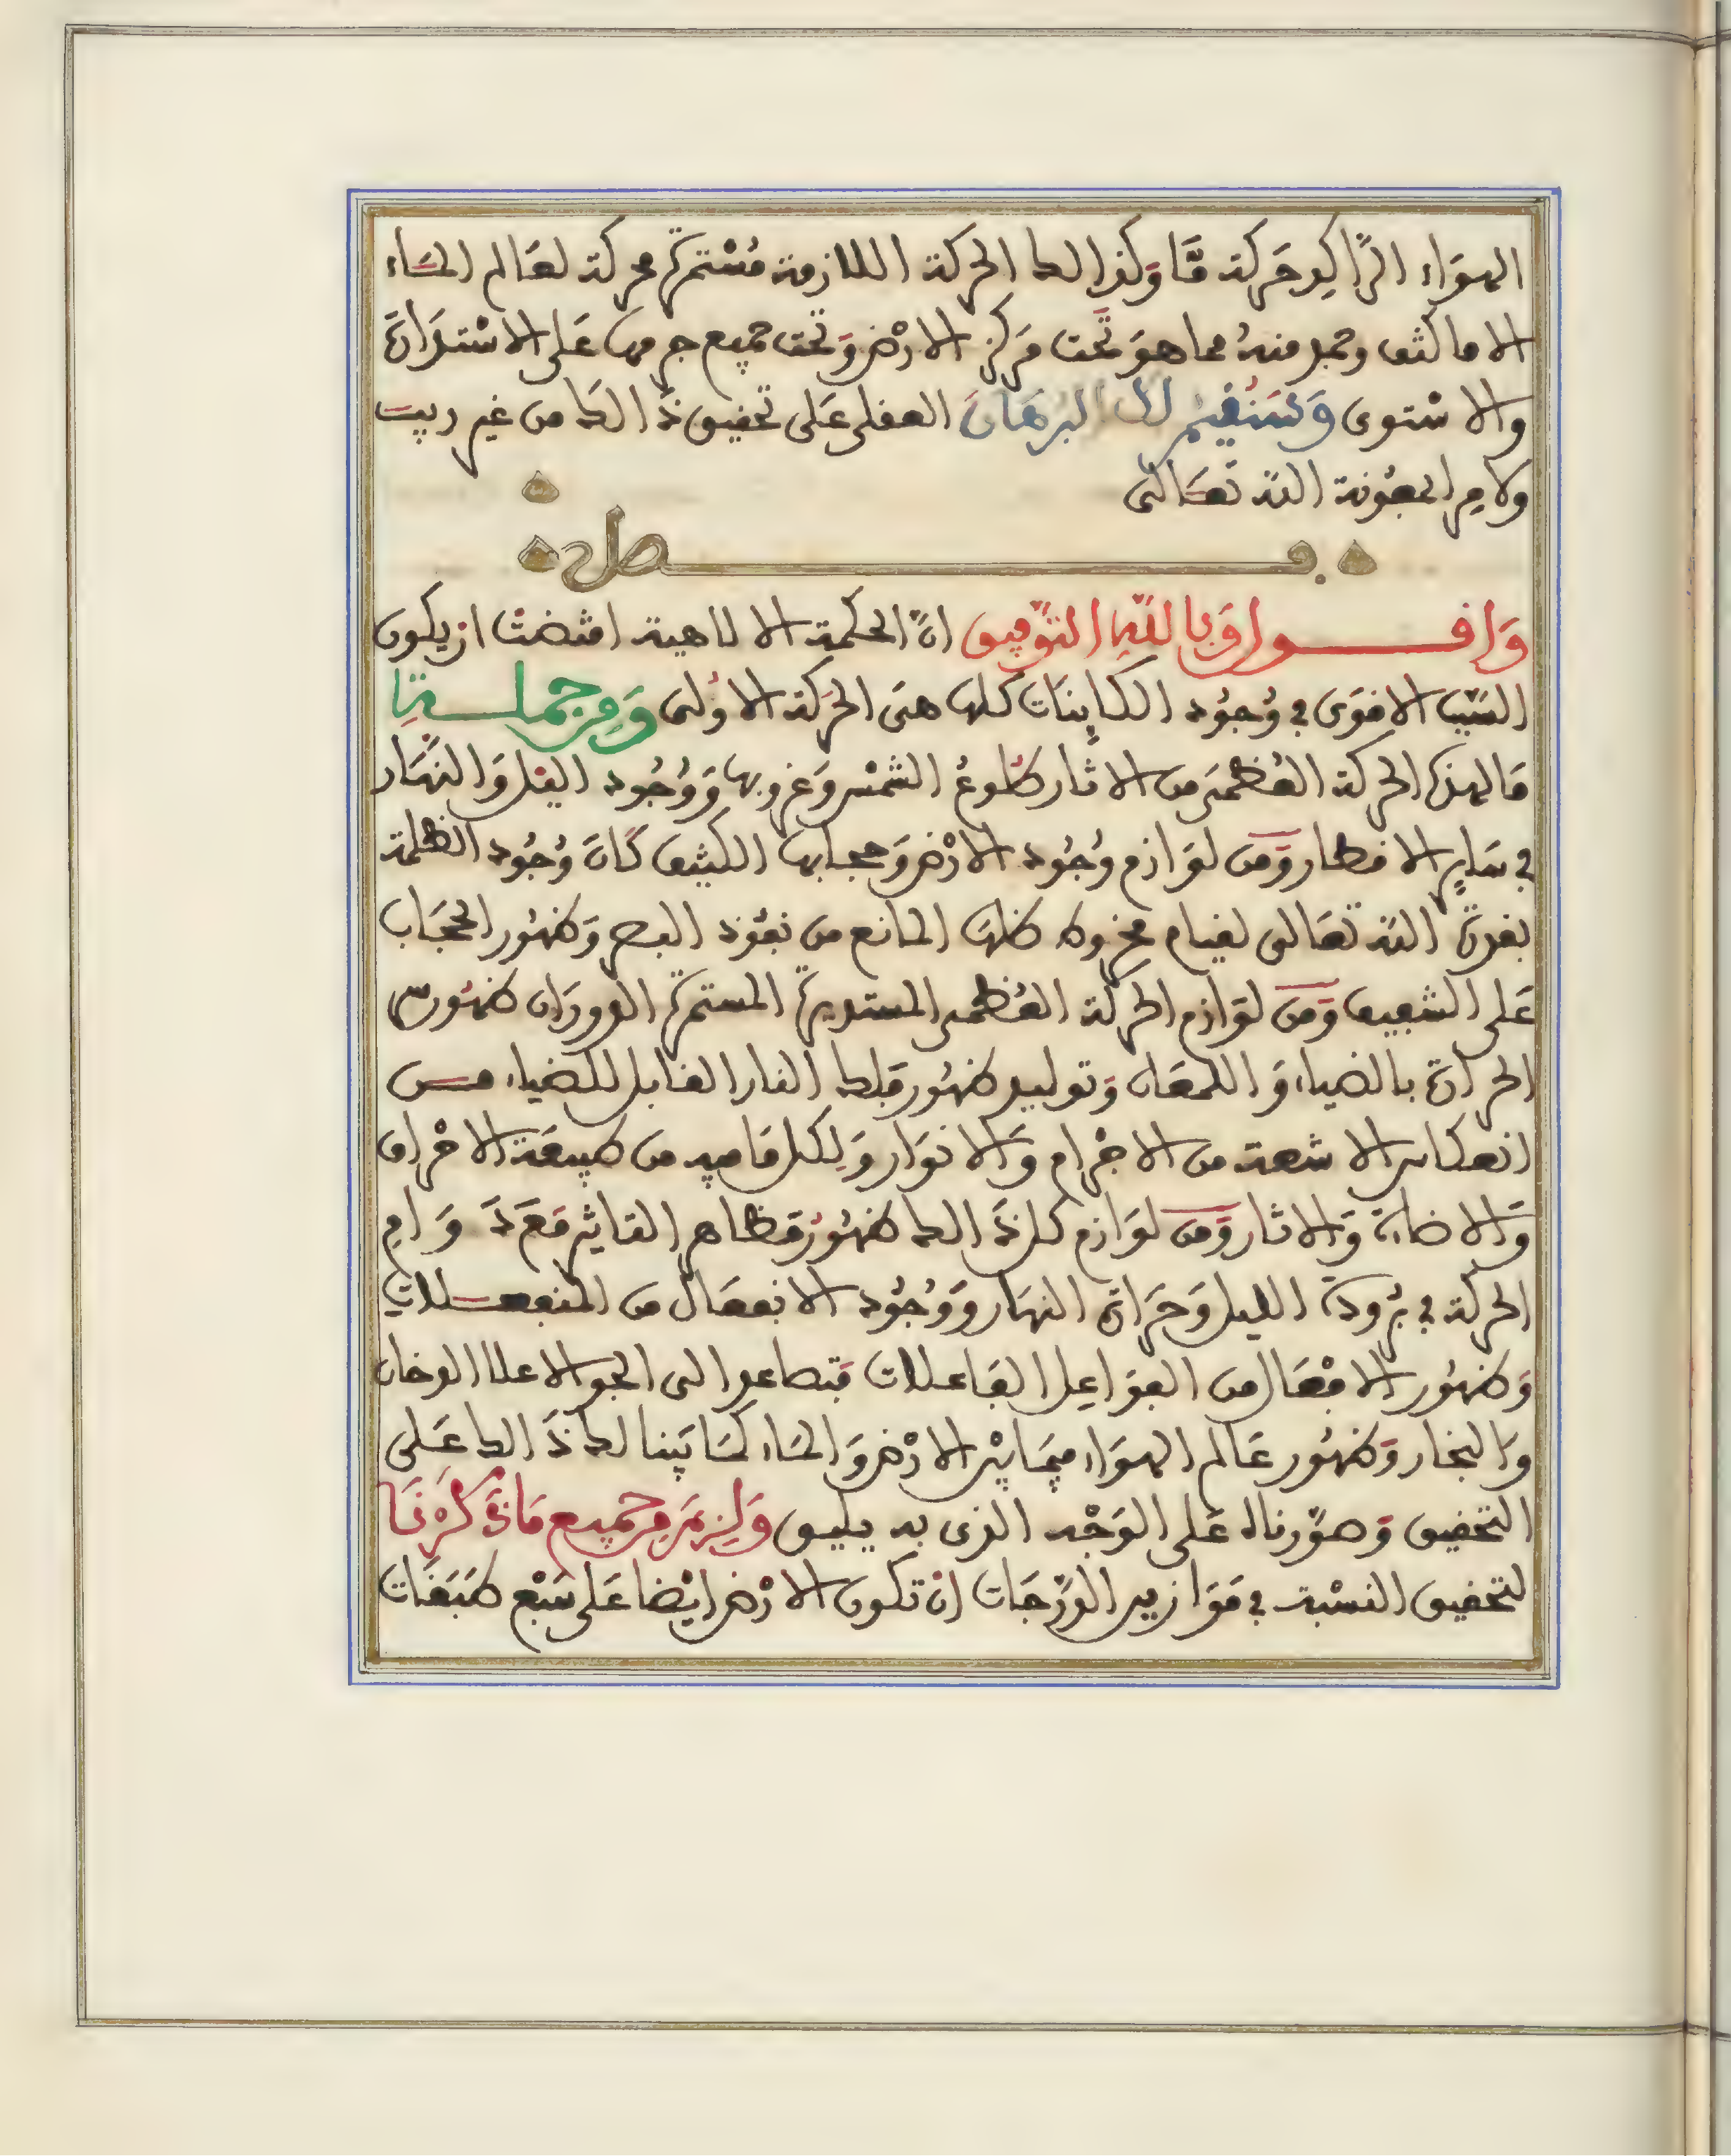 الهواء الراكد حركة ما وكذالك الحركة اللازمة مستمرة محركة لعالم الماء
الا ما كثف وجمد منه مما هو تحت مركز الارض وتحت جميع جرمها على الاستدارة
والاستوى وسنقيم لك البرهان العقلى على تحقيق ذالك من غير ريب
ولا مرا بمعونة الله تعالى
فصل
واقول وبالله التوفيق ان الحكمة الالاهية اقتضت ان يكون
السبب الاقوى في وجود الكاينات كلها هى الحركة الاولى ومن جملة
ما لهذه الحركة العظمى من الاثار طلوع الشمس وغروبها ووجود اليل والنهار
في ساير الاقطار ومن لوازم وجود الارض وحجابها الكثيف كان وجود الظلمة
بقدرة الله تعالى لقيام مخروط ظلها المانع من نفوذ البصر وظهور الحجاب
على الشفيف ومن لوازم الحركة العظمى المستديرة المستمرة الدوران ظهور
الحرارة بالضياء واللمعان وتوليد ظهور فلك النار القابل للضياء من
انعكاس الاشعة من الاجرام والانوار ولكل ما فيه من طبيعة الاحراق
والاضاءة والاثار ومن لوازم كل ذالك ظهور مظاهر التاثير مع دوام
الحركة في برودة الليل وحرارة النهار ووجود الانفعال من المنفعلات
وظهور الافعال من الفواعل الفاعلات فتصاعد الى الجو الاعلا الدخان
والبخار وظهور عالم الهواء فيما بين الارض والماء كما بينا لك ذالك على
التحقيق وصورناه على الوجه الذى به يليق ولزم من جميع ما ذكرنا
لتحقيق النسبة في موازين الدرجات ان تكون الارض ايضا على سبع طبقات